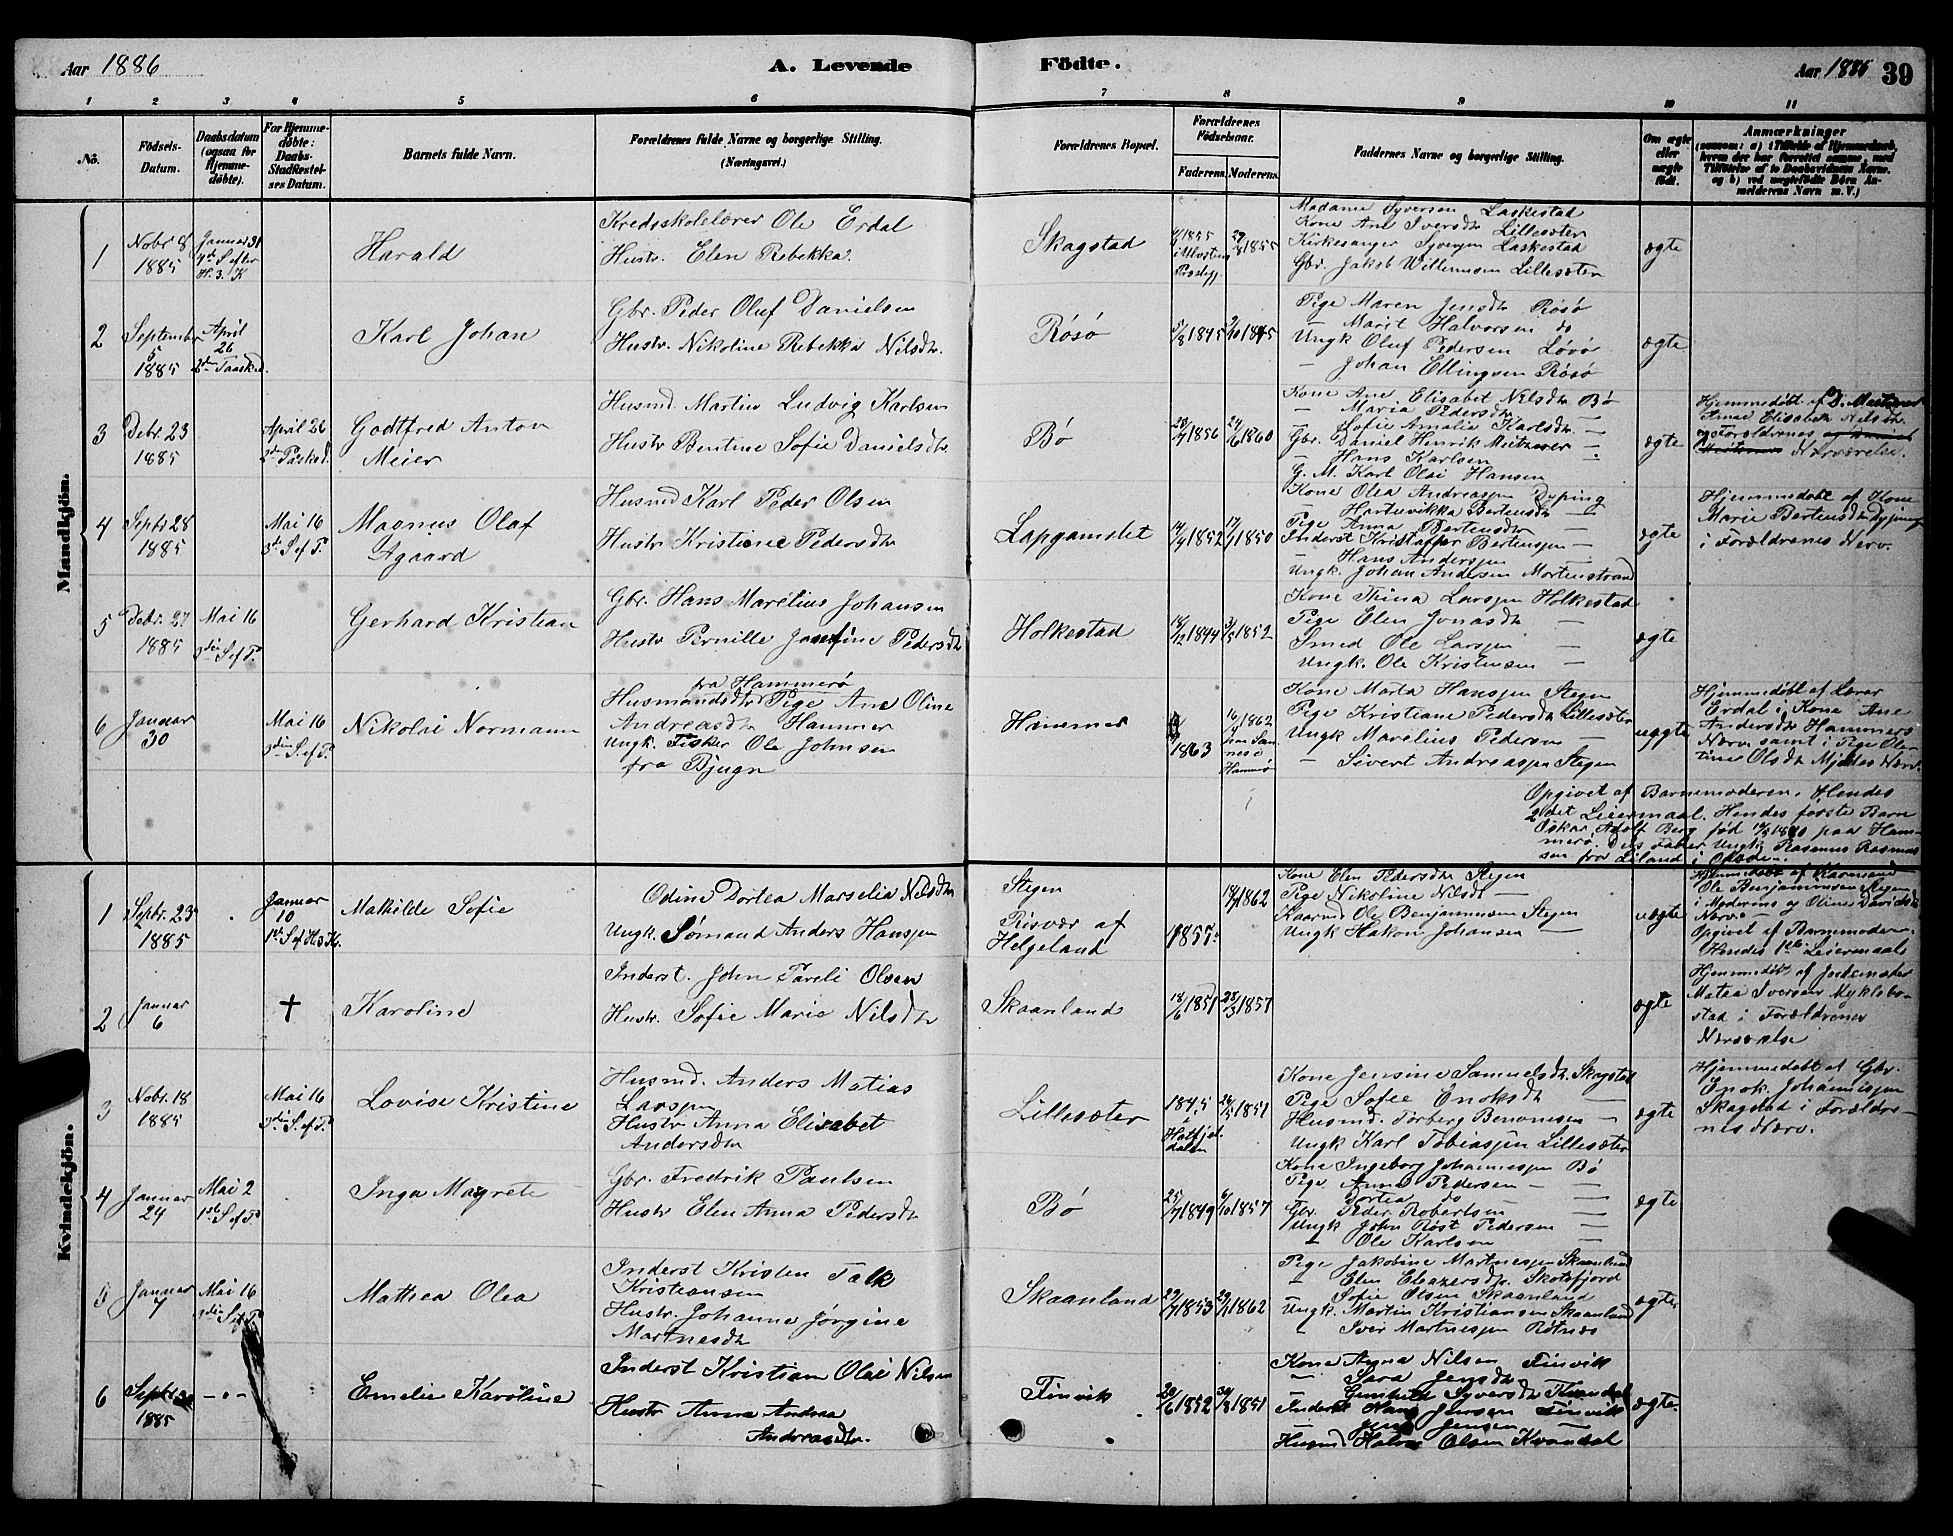 Aar 1886
A. Levende
Födte.
Aar 1886 39
1 2 3 4 5 6 7 8 9 10 11
No.
Födsels-Datum.
Daabsdatum (ogsaa for Hjemmedöbte).
For Hjemmedöbte: Daabs-Stadfæstelses Datum.
Barnets fulde Navn.
Forældrenes fulde Navne og borgerlige Stilling. (Næringsvei.)
Forældrenes Bopæl.
Forældrenes Födselsaar.
Faderens. Moderens.
Faddernes Navne og borgerlige Stilling.
Om ægte eller uægte födt.
Anmærkninger
(saasom: a) i Tilfælde af Hjemmedaab, hvem der har forrettet samme, med Tilföielse af to Daabsvidners Navne, og b) ved uægtefödte Börn Anmelderens Navn m. V.)
Mandkjön.
1
Nobr 8
1885
Januar 31
4de S efter
H. 3. K
Harald
Kredsskolelærer Ole Erdal
Hustr. Elen Rebekka
Skagstad
1855
29/8 1855
Madame Syversen Laskestad
Kone Ane Iversdtr Lillesæter
Kirkesanger Syversen Laskestad
Gbr. Jakob Willumsen Lillesæter
ægte
2
September
5
1885
April
26
2den Paasked.
Karl Johan
Gbr. Peder Oluf Danielsen
Hustr. Nikoline Rebekka Nilsdtr.
Rösö
5/8 1845
9/10 1845
Pige Maren Jensdtr Rösö
— Marit Halvorsen do
Ungk Oluf Pedersen Lövö
— Johan Ellingsen Rösö
ægte
3
Debr. 23
1885
April 26
2den Paaskd.
Godtfred Anton
Meier
Husmd. Martin Ludvig Karlsen
Hustr Bentine Sofie Danielsdtr.
Bö
28/7 1856
24/6 1860
Kone Ane Elisabet Nelsdtr Bö
— Maria Pedersdtr —
— Sofie Amalie Karlsdtr —
Gbr. Daniel Henrik Meitzener —
— Hans Karlsen —
G. M. Karl Olai Hansen
ægte
Hjemmedöbt af
Anne Elisabeth Nilsdtr.
Forældrenes
Nærværelse.
4
Septbr 28
1885
Mai 16
3die S ef P.
Magnus Olaf
Agaard
Husmd Karl Peder Olsen
Hustr Kristine Pedersdtr
Lapgamslet
14/4 1852
17/7 1850
Kone Olea Andreassen Dyping
— Hartvikka Bertensdtr —
Pige Anna Bertensdtr —
Inderst Kristoffer Bertensen —
— Hans Anderssen —
Ungk. Johan Andersen Mortenstrand
ægte
Hjemmedöbt af Kone
Marie Bertensdtr Dyping
i Forældrenes Nærv.
5
Debr. 27
1885
Mai 16
3die S ef P.
Gerhard Kristian
Gbr. Hans Marelius Johansen
Hustr Pernille Josefine Pedersdtr
Holkestad
18/12 1844
3/5 1852
Kone Thina Larsen Holkestad
Pige Elen Jonasdtr —
Smed Ole Larsen —
Ungk. Ole Kristensen —
ægte
6
Januar
30
Mai 16
3die S. ef P.
Nikolai Normann
fra Hammerö
Husmandsdtr Pige Ane Oline
Andreasdtr Hammer
Ungk. Fisker Ole Johnsen
fra Bjugn
Hammer
1863
16/ 1862
Hammerö
Kone Marta Hanssen Stegen
Pige Kristiane Pedersdtr Lillesæter
Ungk Marelius Pedersen —
— Sivert Andreassen Stegen
uægte
Hjemmedöbt af Lærer
Erdal i Kone Ane
Andersdtr Hammers
Nærv. samt i Pige Olen-
tine Olsdtr Mjeldes Nærv
Opgivet af Barnemoderen. Hendes
2det Leiermaal. Hendes förste Barn
Oskar Adolf Berg föd 1880 paa Ham-
merö. Dets Fader Ungk. Rasmus Rasmus
sen fra Liland i Ofoden.
Kvindekjön.
1
Septbr. 23
1885
Januar
10
1st S ef H3K.
Mathilde Sofie
Odine Dortea Marselia Nilsdtr
Ungk. Sömand Anders Hanssen
Stegen
Risvær af
Helgeland
1855
18/7 1862
Kone Elen Pedersdtr Stegen
Pige Nikoline Nilsdtr —
Kaarmd Ole Benjaminsen Stegen
Ungk Hakon Johansen —
uægte
Hjemmedöbt af Kaarmand
Ole Benjaminsen Stegen
i Moderens og Oline Davidsdtr
Nærv.
Opgivet af Barnemoderen.
Hendes 1ste Leiermaal
2
Januar
6
†
Karoline
Inderst. John Pareli Olsen
Hustr. Sofie Marie Nilsdtr
Skaanland
18/6 1851
28/3 1857
ægte
Hjemmedöbt af Jordemoder
Matea Iversen Myklebo-
stad i Forældrenes
Nærværelse
3
Nobr. 18
1885
Mai 16
3die S. ef P.
Lovise Kristine
Husmd. Anders Matias
Larssen
Hustr Anna Elisabet
Andersdtr
Lillesæter
1845
i
Hatfjel-
dalen
24/5 1851
Kone Jensine Samuelsdtr Skagstad
Pige Sofie Enoksdtr —
Husmd. Torberg Benonisen —
Ungk Karl Tobiassen Lillesæter
ægte
Hjemmedöbt af Gbr.
Enok Johannessen
Skagstad i Forældre-
nes Nærv.
4
Januar
24
Mai 2
1st S ef P
Inga Magrete
Gbr. Fredrik Paulsen
Hustr Elen Anna Pedersdtr
Bö
25/7 1849
6/10 1857
Kone Ingeborg Johannessen Bö
Pige Anne Pedersen —
Dortea do —
Gbr. Peder Robertsen —
Ungk John Röst Pedersen —
— Ole Karlsen —
ægte
5
Januar
7
Mai 16
3die S ef P
Mathea Olea
Inderst Kristen Falk
Kristiansen
Hustr. Johanne Jörgine
Martnesdtr
Skaanland
29/7 1853
29/7 1862
Pige Jakobine Martnessen Skaanland
— Elen Eleazersdtr. Skotsfjord
— Sofie Olsen Skaanland
Ungk. Martin Kristiansen Skaanland
— Iver Martnessen Rötnes
ægte
6
Septbr
1885
— „ —
Emelie Karoline
Inderst Kristian Olai Nilsen
Hustr Anna Andrea
Andreasdtr.
Finvik
20/6 1852
30/8 1851
Kone Anna Nilsen Finvik
— Sara Jensdtr —
— Gunhild Syversdtr Kvandal
Inderst Hans Jensen Finvik
— Jensen —
Husmd Halvor Olsen Kvandal
ægte.